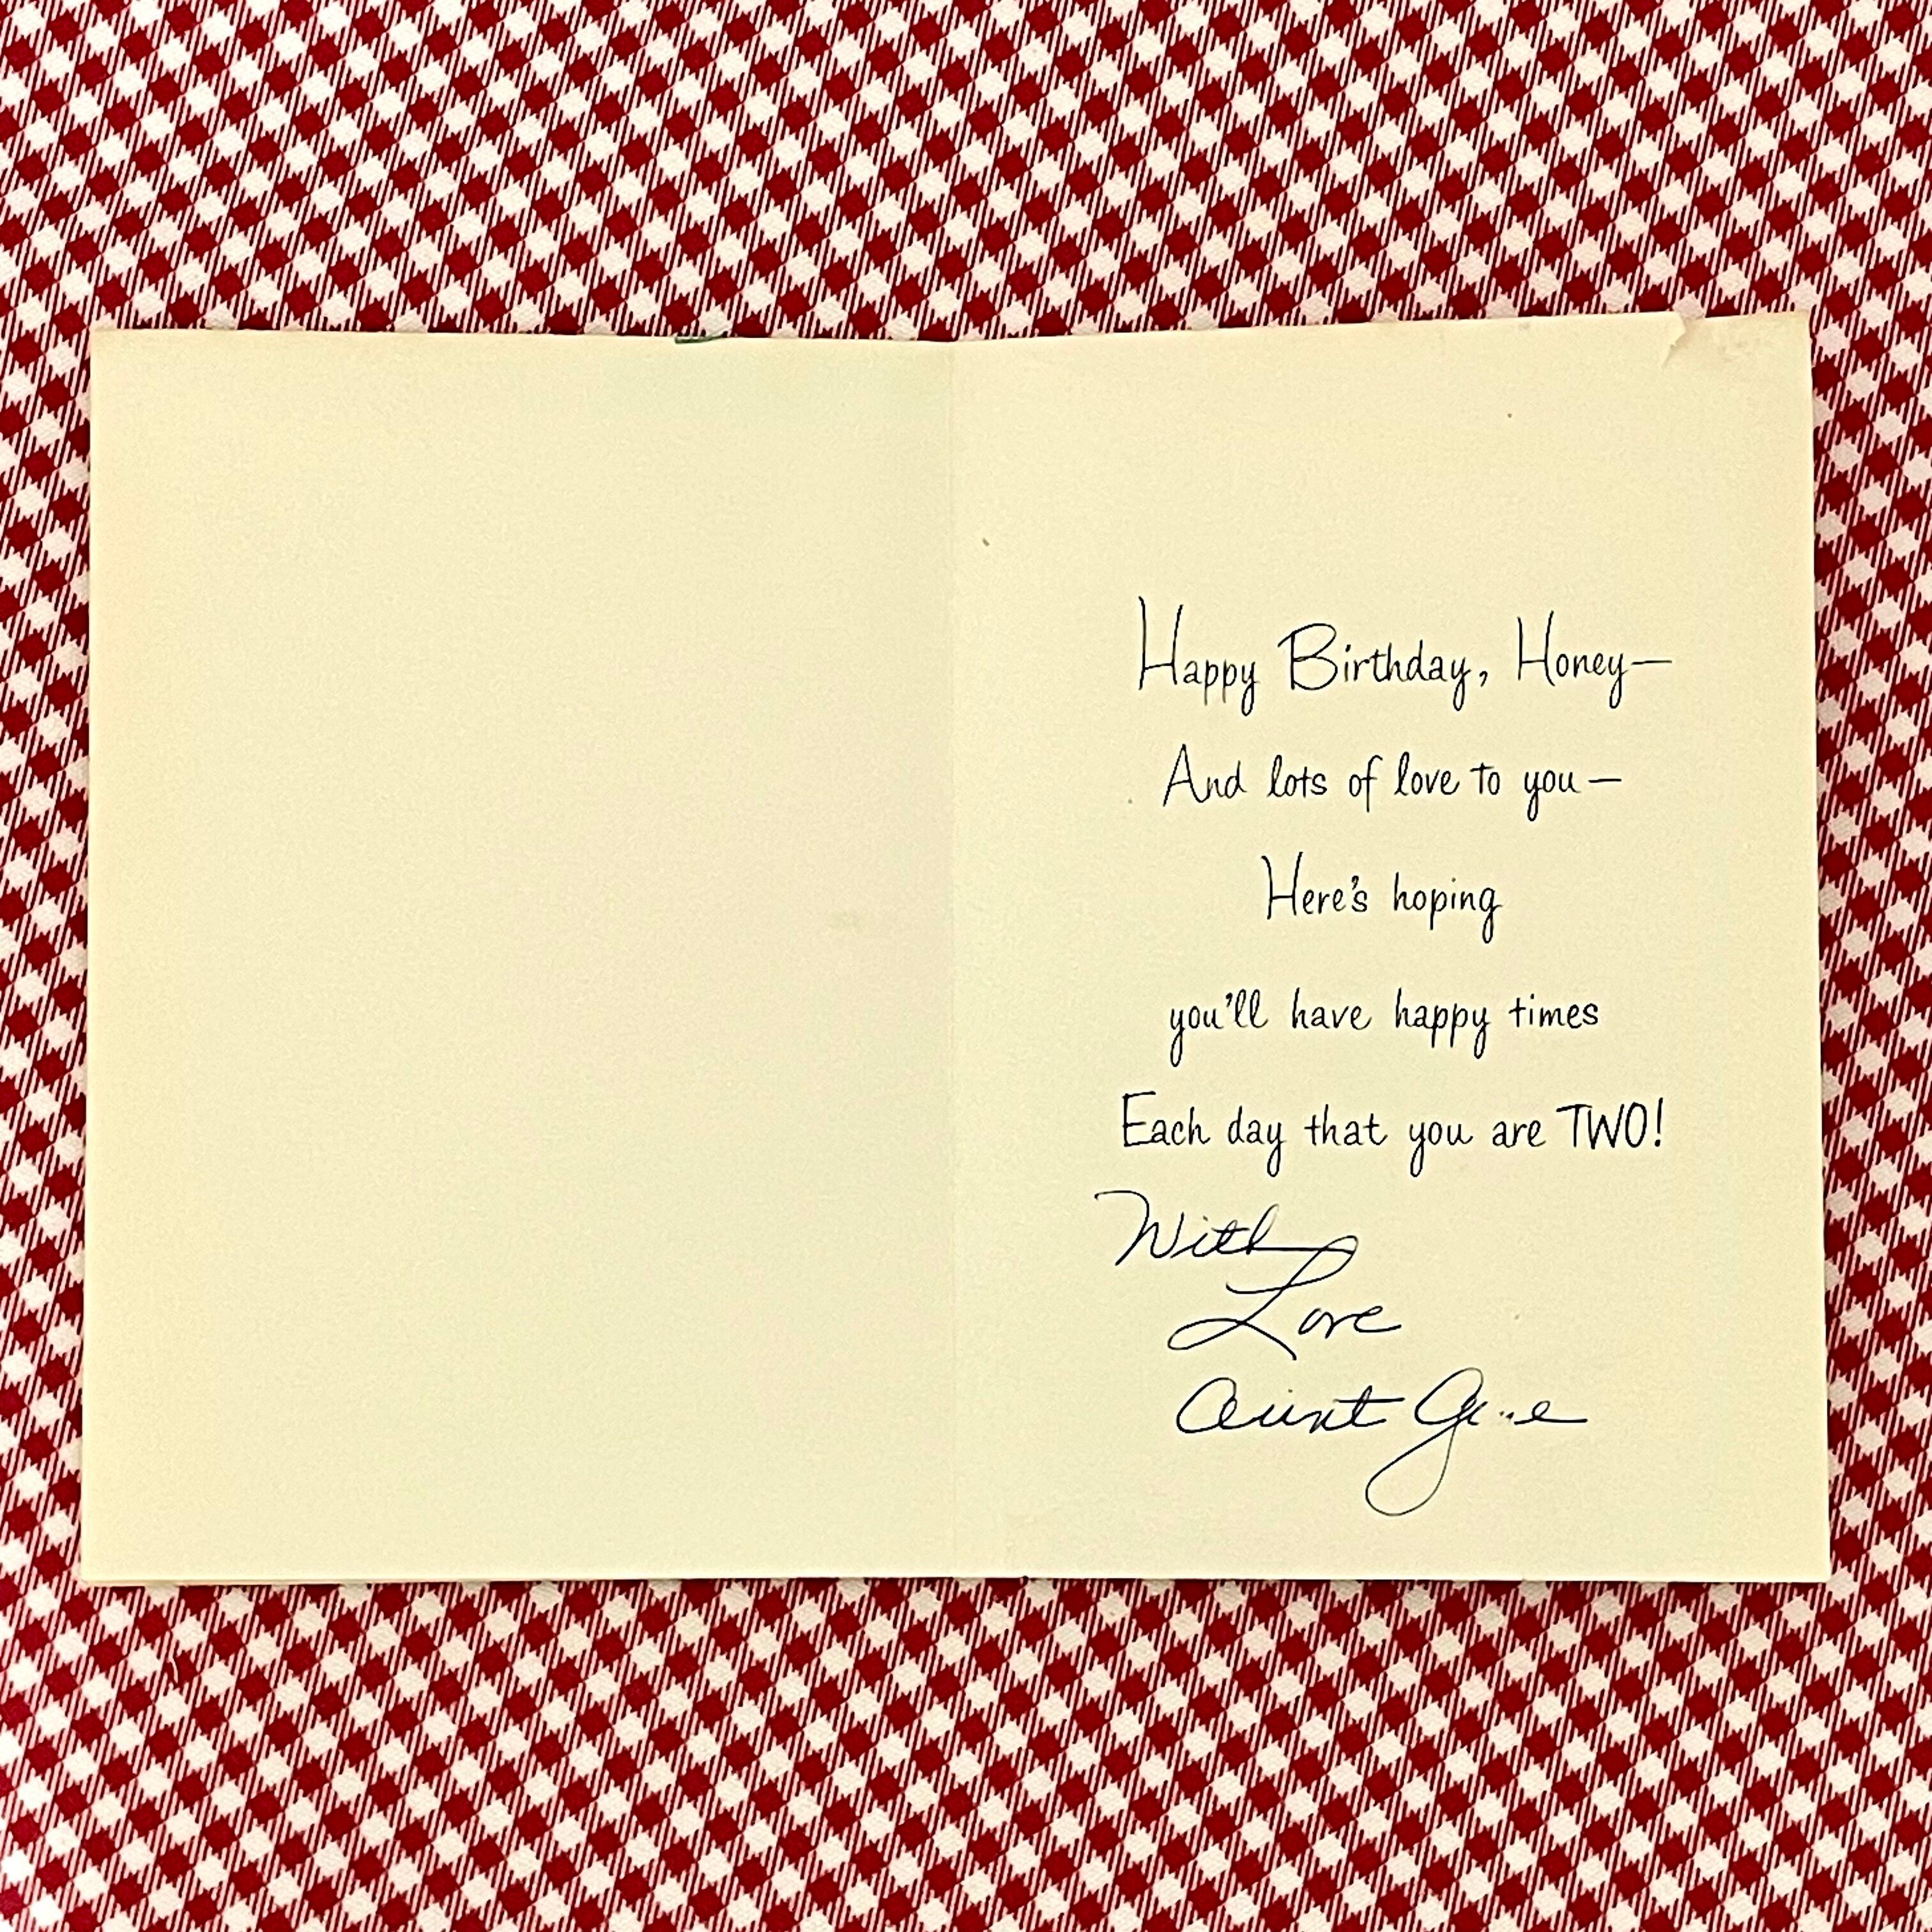 Happy Birthday, Honey—
And lots of love to you—
Here's hoping
you'll have happy times
Each day that you are TWO!
With
Love
Aunt